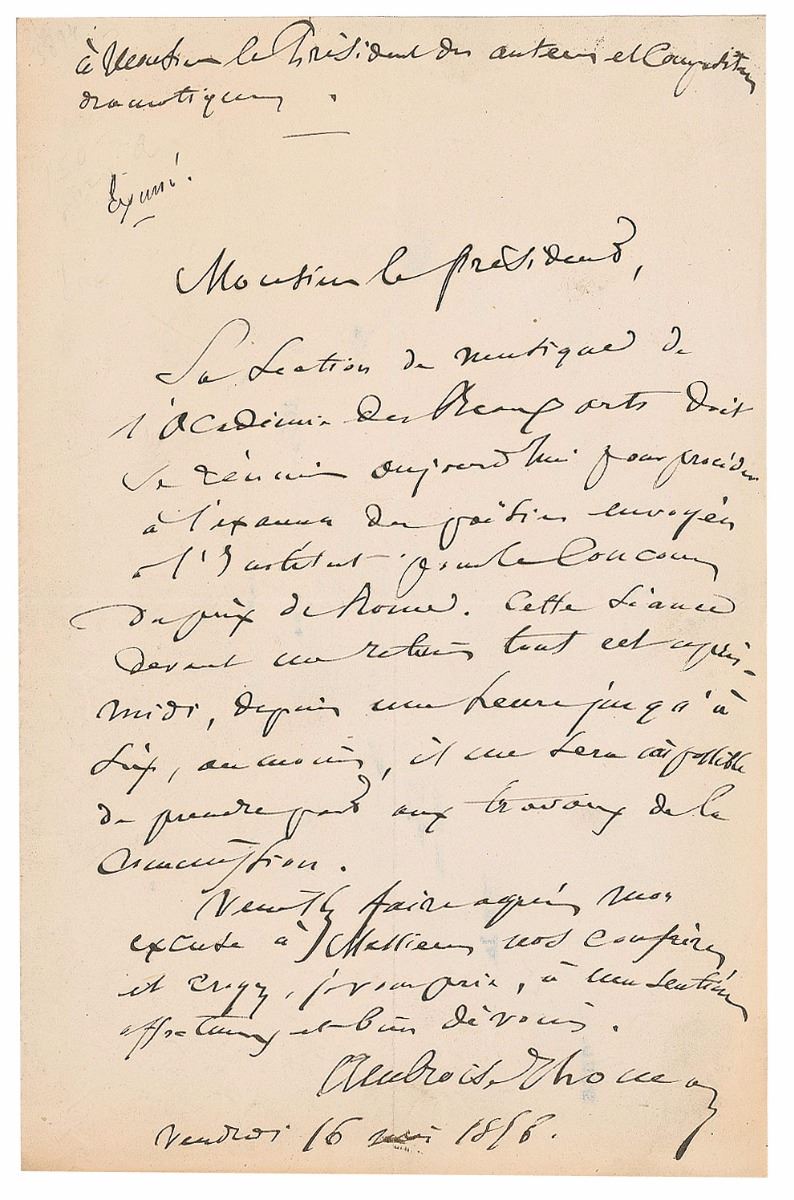 à Monsieur le Président des auteurs et Compositeurs
dramatiques.
Excusé.
Monsieur le président,
La Section de musique de
l'académie des Beaux arts doit
se réunir aujourd'hui pour procéder
à l'examen des poësies envoyées
à l'Institut pour le Concours
du prix de Rome. Cette séance
devant me retenir tout cet après-
midi, depuis une heure jusqu'à
six, au moins, il me sera impossible
de prendre part aux travaux de la
commission.
Veuillez faire agréer mon
excuse à Messieurs nos confrères
et croyez, je vous prie, à mes sentimens
affectueux et bien dévoués.
Ambroise Thomas
Vendredi 16 mai 1856.